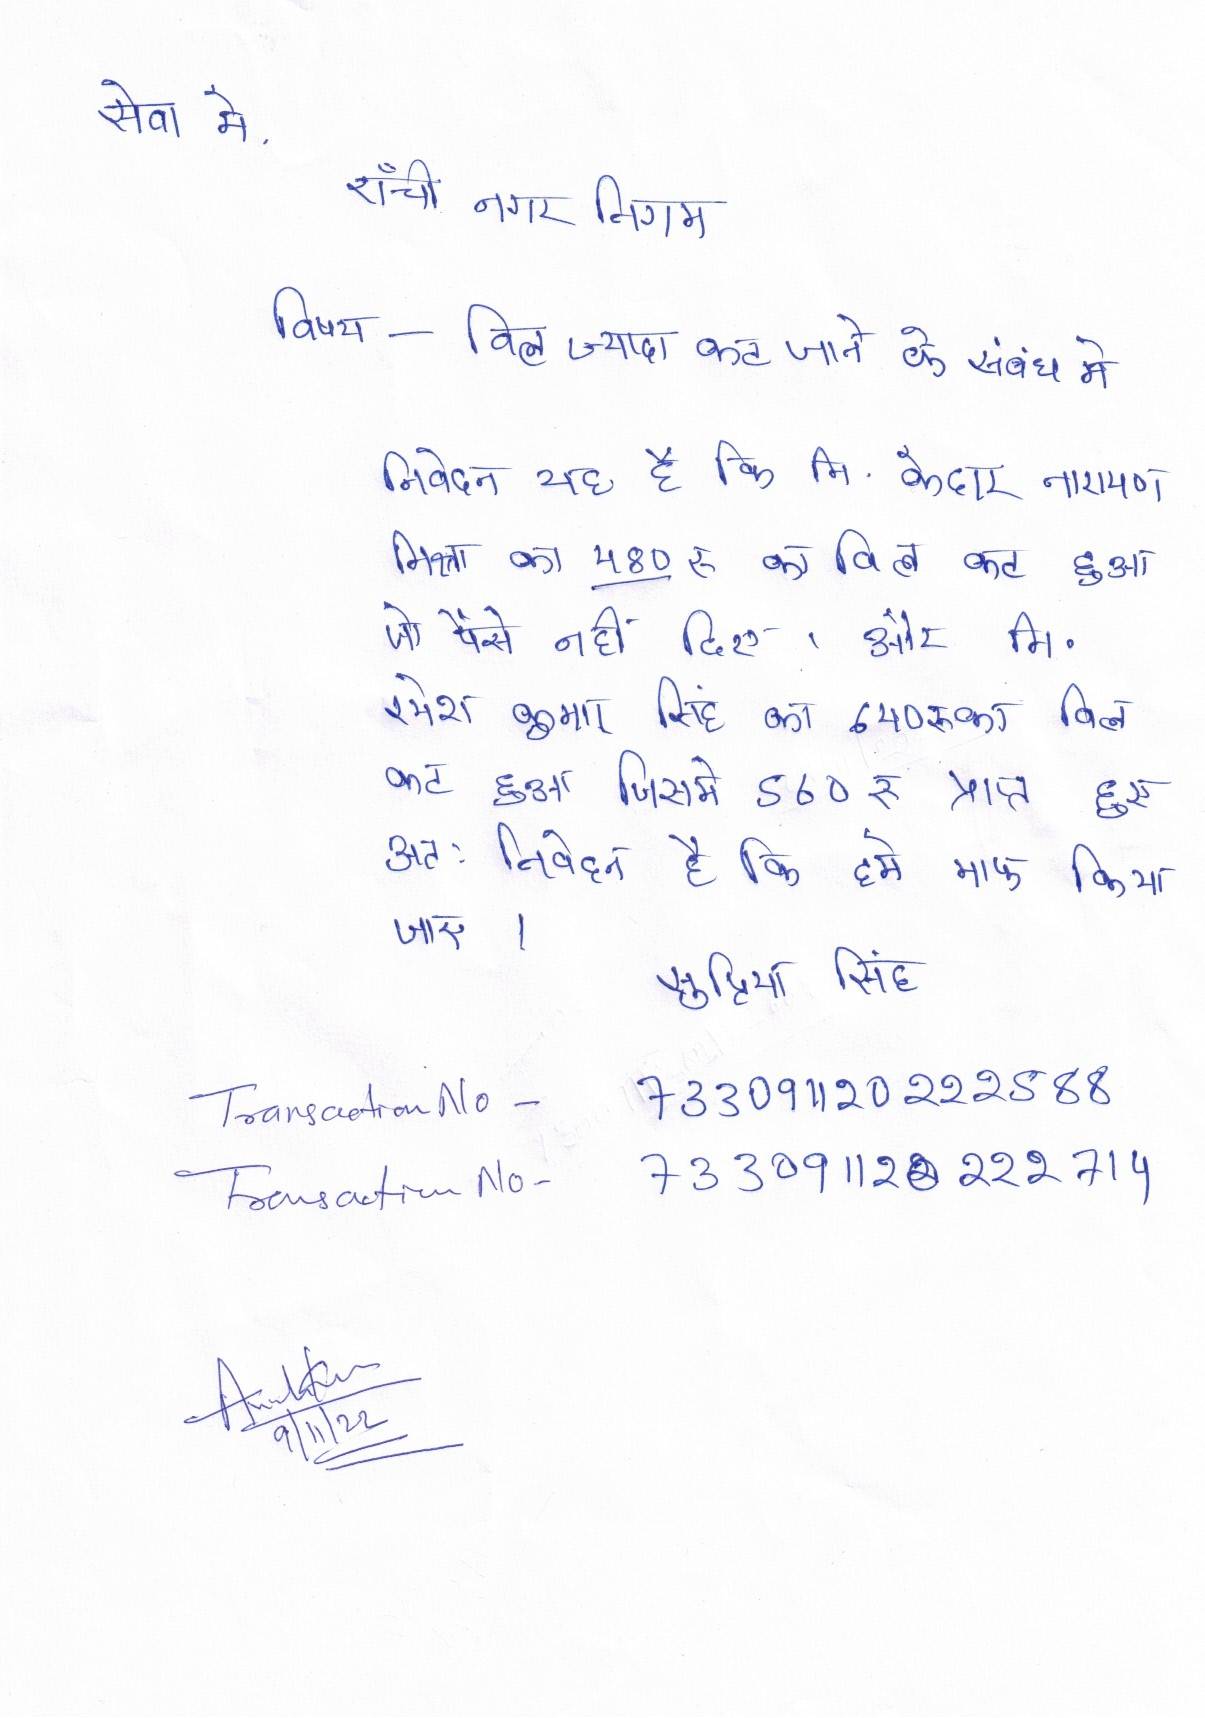 सेवा मे.
राँची नगर निगम
विषय - विल ज्यादा कट जाने के संबंध मे
निवेदन यह है कि मि. केदार नारायण
मिश्रा का 480 रु का विल कट हुआ
जो पैंसे नहीं दिए । और मि.
रमेश कुमार सिंह का 640 रु का विल
कट हुआ जिसमे 560 रु प्राप्त हुए
अतः निवेदन है कि हमे माफ किया
जाए ।
सुप्रिया सिंह
Transaction No - 733091120222588
Transaction No - 733091122222714
9/11/22